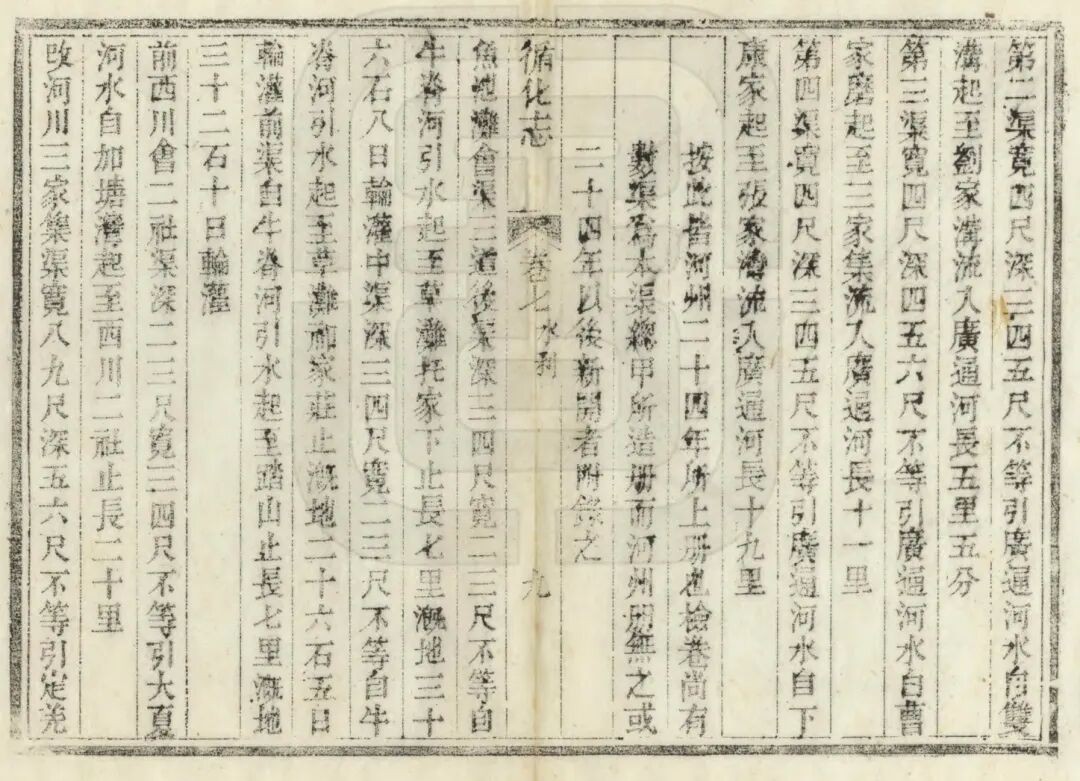 第二渠寬四尺深三四五尺不等引廣通河水自雙
溝起至劉家溝流入廣通河長五里五分
第三渠寬四尺深四五六尺不等引廣通河水自曹
家磨起至三家集流入廣通河長十一里
第四渠寬四尺深三四五尺不等引廣通河水自下
康家起至張家灣流入廣通河長十九里
按此皆河州二十四年所上册也檢卷尚有
數渠爲本渠總甲所造册而河州册無之或
二十四年以後新開者附錄之
循化志 卷七 水利 九
魚池灘會渠三道後渠深三四尺寬二三尺不等自
牛脊河引水起至草灘托家下止長七里溉地三十
六石八日輪灌中渠深三四尺寬二三尺不等自牛
脊河引水起至草灘祁家莊止溉地二十六石五日
輪灌前渠自牛脊河引水起至踏山止長七里溉地
三十二石十日輪灌
前西川會二社渠深二三尺寬三四尺不等引大夏
河水自加塘灣起至西川二社止長二十里
改河川三家集渠寬八九尺深五六尺不等引定羌